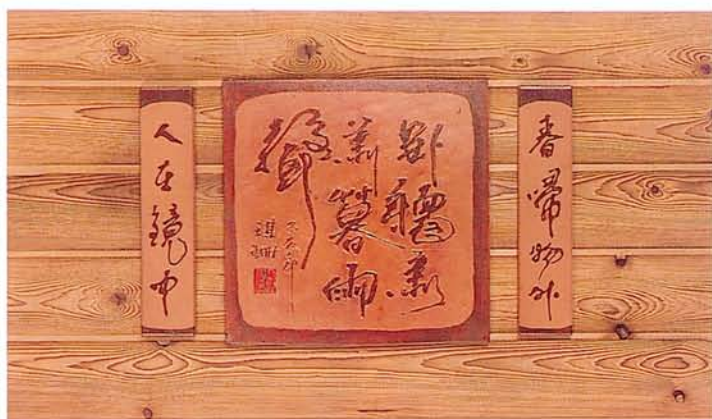 春歸物外
卧聽蕭
蕭暮雨
聲
人在鏡中